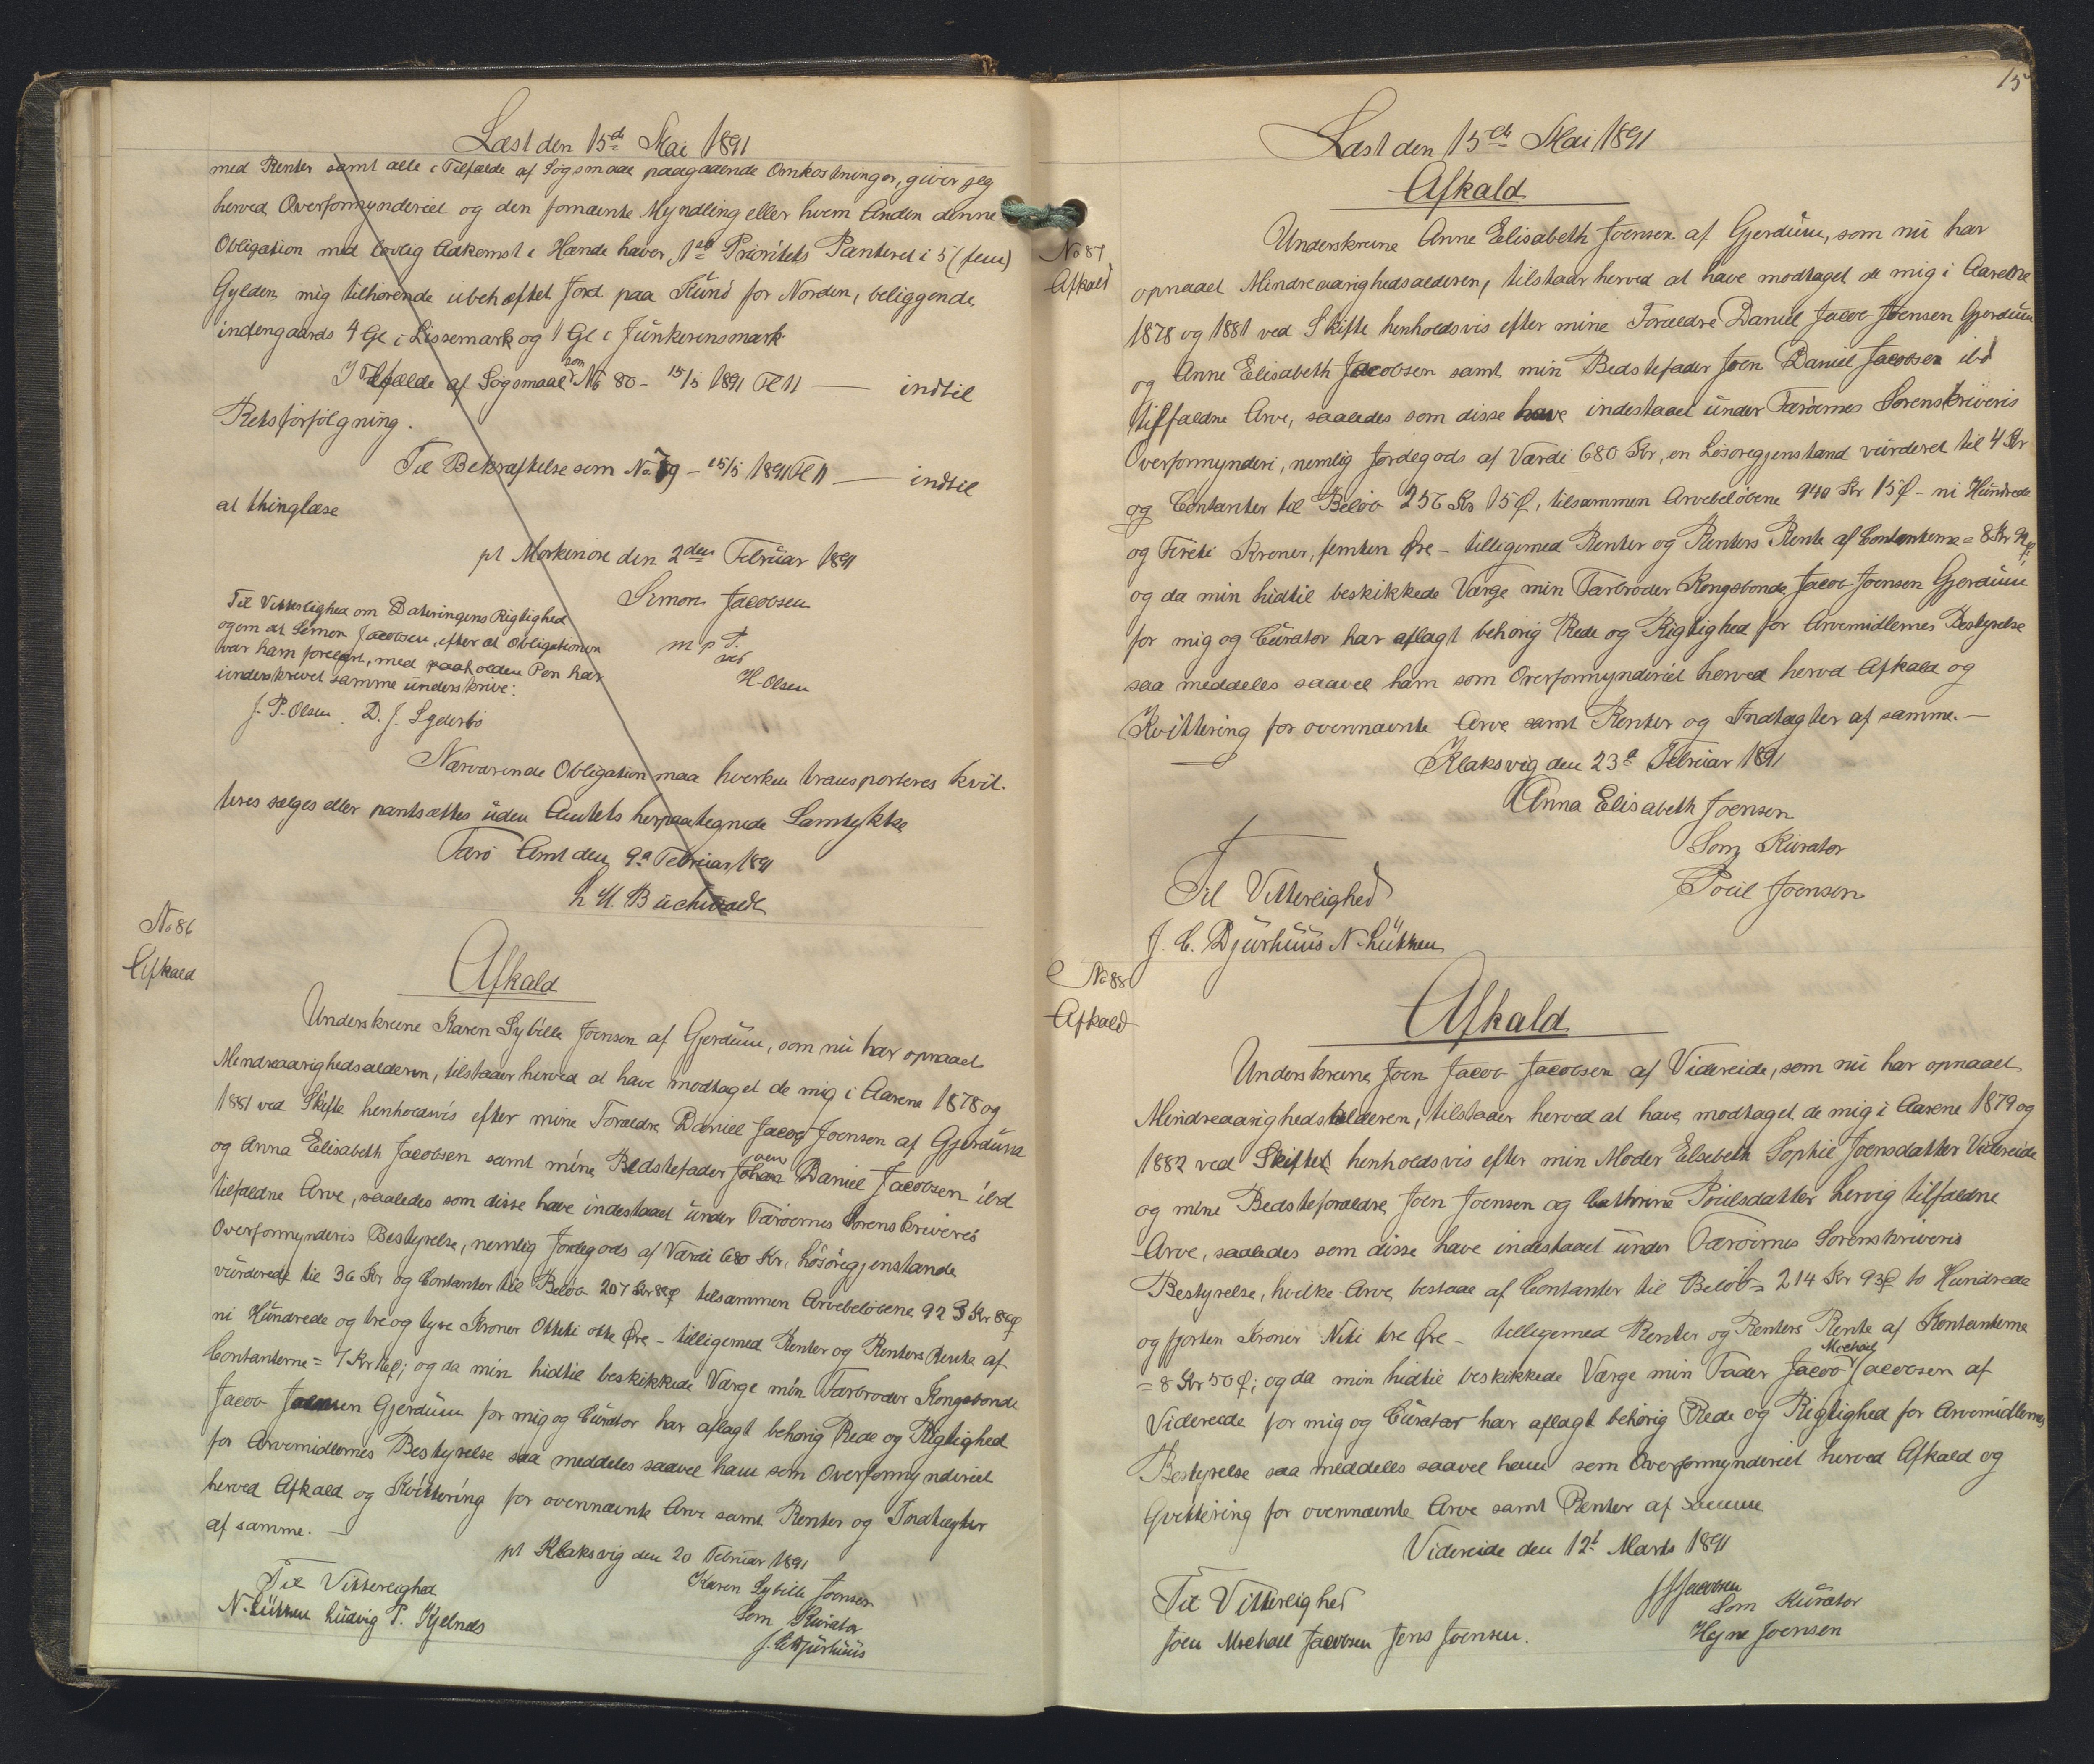 Læst den 15de Mai 1891
med Renter samt alle i Tilfælde af Søgsmaal paagaaende Omkostninger, giver jeg
herved Overformynderiet og den fornævnte Myndling eller hvem Anden denne
Obligation med lovlig Adkomst i Hænde haver, 1ste Prioritets Panteret i 5 (fem)
Gylden mig tilhørende ubehæftet Jord paa Kunø for Norden, beliggende
indengaards 4 Gl i Lissemark og 1 Gl i Junkerensmark.
I Tilfælde af Søgsmaal som No 80 - 15/5 1891 Fl 11 — indtil
Retsforfølgning.
Til Bekræftelse som No 79 - 15/5 1891 Fl 11 — indtil
at thinglæse
pt Morkenøre den 2den Februar 1891
Simon Jacobsen
m p P.
ved
H. Olsen
Til Vitterlighed om Dateringens Rigtighed
og om at Simon Jacobsen, efter at Obligationen
var ham forelæst, med paaholden Pen har
underskrevet samme underskrive:
J. P. Olsen D. J. Syderbø
Nærværende Obligation maa hverken transporteres kvit-
teres sælges eller pantsættes uden Amtets herpaategnede Samtykke
Færø Amt den 9d Februar 1891
h U. Buchwaldt
No 86
Afkald
Afkald
Underskrevne Karen Sybille Joensen af Gjerdum, som nu har opnaaet
Mindreaarighedsalderen, tilstaaer herved at have modtaget de mig i Aarene 1878 og
1881 ved Skifte henholdsvis efter mine Forældre Daniel Jacob Joensen af Gjerdum
og Anna Elisabeth Jacobsen samt mine Bedstefader Johan oen Daniel Jacobsen ibd
tilfaldne Arve, saaledes som disse have indestaaet under Færøernes Sorenskriveris
Overformynderis Bestyrelse, nemlig Jordegods af Værdi 680 Kr, Løsøregjenstande
vurderede til 36 Kr og Contanter til Beløb 207 Kr 88 Ø tilsammen Arvebeløbene 923 Kr 88 Ø
ni Hundrede og tre og tyve Kroner Otteti otte Øre - tilligemed Renter og Renters Rente af
Contanterne = 7 Kr 16 Ø; og da min hidtil beskikkede Værge min Farbroder Kongsbonde
Jacob Joensen Gjerdum for mig og Curator har aflagt behørig Rede og Rigtighed
for Arvemidlernes Bestyrelse saa meddeles saavel ham som Overformynderiet
herved Afkald og Kvittering for ovennævnte Arve samt Renter og Indtægter
af samme. —
pt Klaksvig den 20 Februar 1891
Karen Sybille Joensen
Som Kurator
J. C. Djurhuus
Til Vitterlighed
N. Lützen Ludvig P. Kjelnæs
15
Læst den 15de Mai 1891
No 87
Afkald
Afkald
Underskrevne Anne Elisabeth Joensen af Gjerdum, som nu har
opnaaet Mindreaarighedsalderen, tilstaar herved at have modtaget de mig i Aarene
1878 og 1881 ved Skifte henholdsvis efter mine Forældre Daniel Jacob Joensen Gjerdum
og Anne Elisabeth Jacobsen samt min Bedstefader Joen Daniel Jacobsen ibd
tilfaldne Arve, saaledes som disse have indestaaet under Færøernes Sorenskriveris
Overformynderi, nemlig Jordegods af Værdi 680 Kr, en Løsøregjenstand vurderet til 4 Kr
og Contanter til Beløb 256 Kr 15 Ø, tilsammen Arvebeløbene 940 Kr 15 Ø - ni Hundrede
og Fireti Kroner, femten Øre - tilligemed Renter og Renters Rente af Contanterne = 8 Kr
og da min hidtil beskikkede Værge min Farbroder Kongsbonde Jacob Joensen Gjerdum
for mig og Curator har aflagt behørig Rede og Rigtighed for Arvemidlernes Bestyrelse
saa meddeles saavel ham som Overformynderiet herved herved Afkald og
Kvittering for ovennævnte Arve samt Renter og Indtægter af samme. —
Klaksvig den 23d Februar 1891
Anna Elisabeth Joensen
Som Kurator
Poul Joensen
Til Vitterlighed
J. C. Djurhuus N. Lützen
No 88
Afkald
Afkald
Underskrevne Joen Jacob Jacobsen af Videreide, som nu har opnaaet
Mindreaarighedsalderen, tilstaaer herved at have modtaget de mig i Aarene 1879 og
1882 ved Skiftet henholdsvis efter min Moder Elsebeth Sophie Joensdatter Videreide
og mine Bedsteforældre Joen Joensen og Cathrine Poulsdatter Lervig tilfaldne
Arve, saaledes som disse have indestaaet under Færøernes Sorenskriveris
Bestyrelse, hvilke Arve bestaae af Contanter til Beløb = 214 Kr 93 Ø to Hundrede
og fjorten Kroner Niti tre Øre - tilligemed Renter og Renters Rente af Kontanterne
= 8 Kr 50 Ø; og da min hidtil beskikkede Værge min Fader Jacob Michael Jacobsen af
Videreide for mig og Curator har aflagt behørig Rede og Rigtighed for Arvemidlernes
Bestyrelse saa meddeles saavel ham som Overformynderiet herved Afkald og
Qvittering for ovennævnte Arve samt Renter af samme
Videreide den 12t Marts 1891
JJJacobsen
Som Kurator
Hejne Joensen
Til Vitterlighed
Joen Michael Jacobsen Jens Joensen.